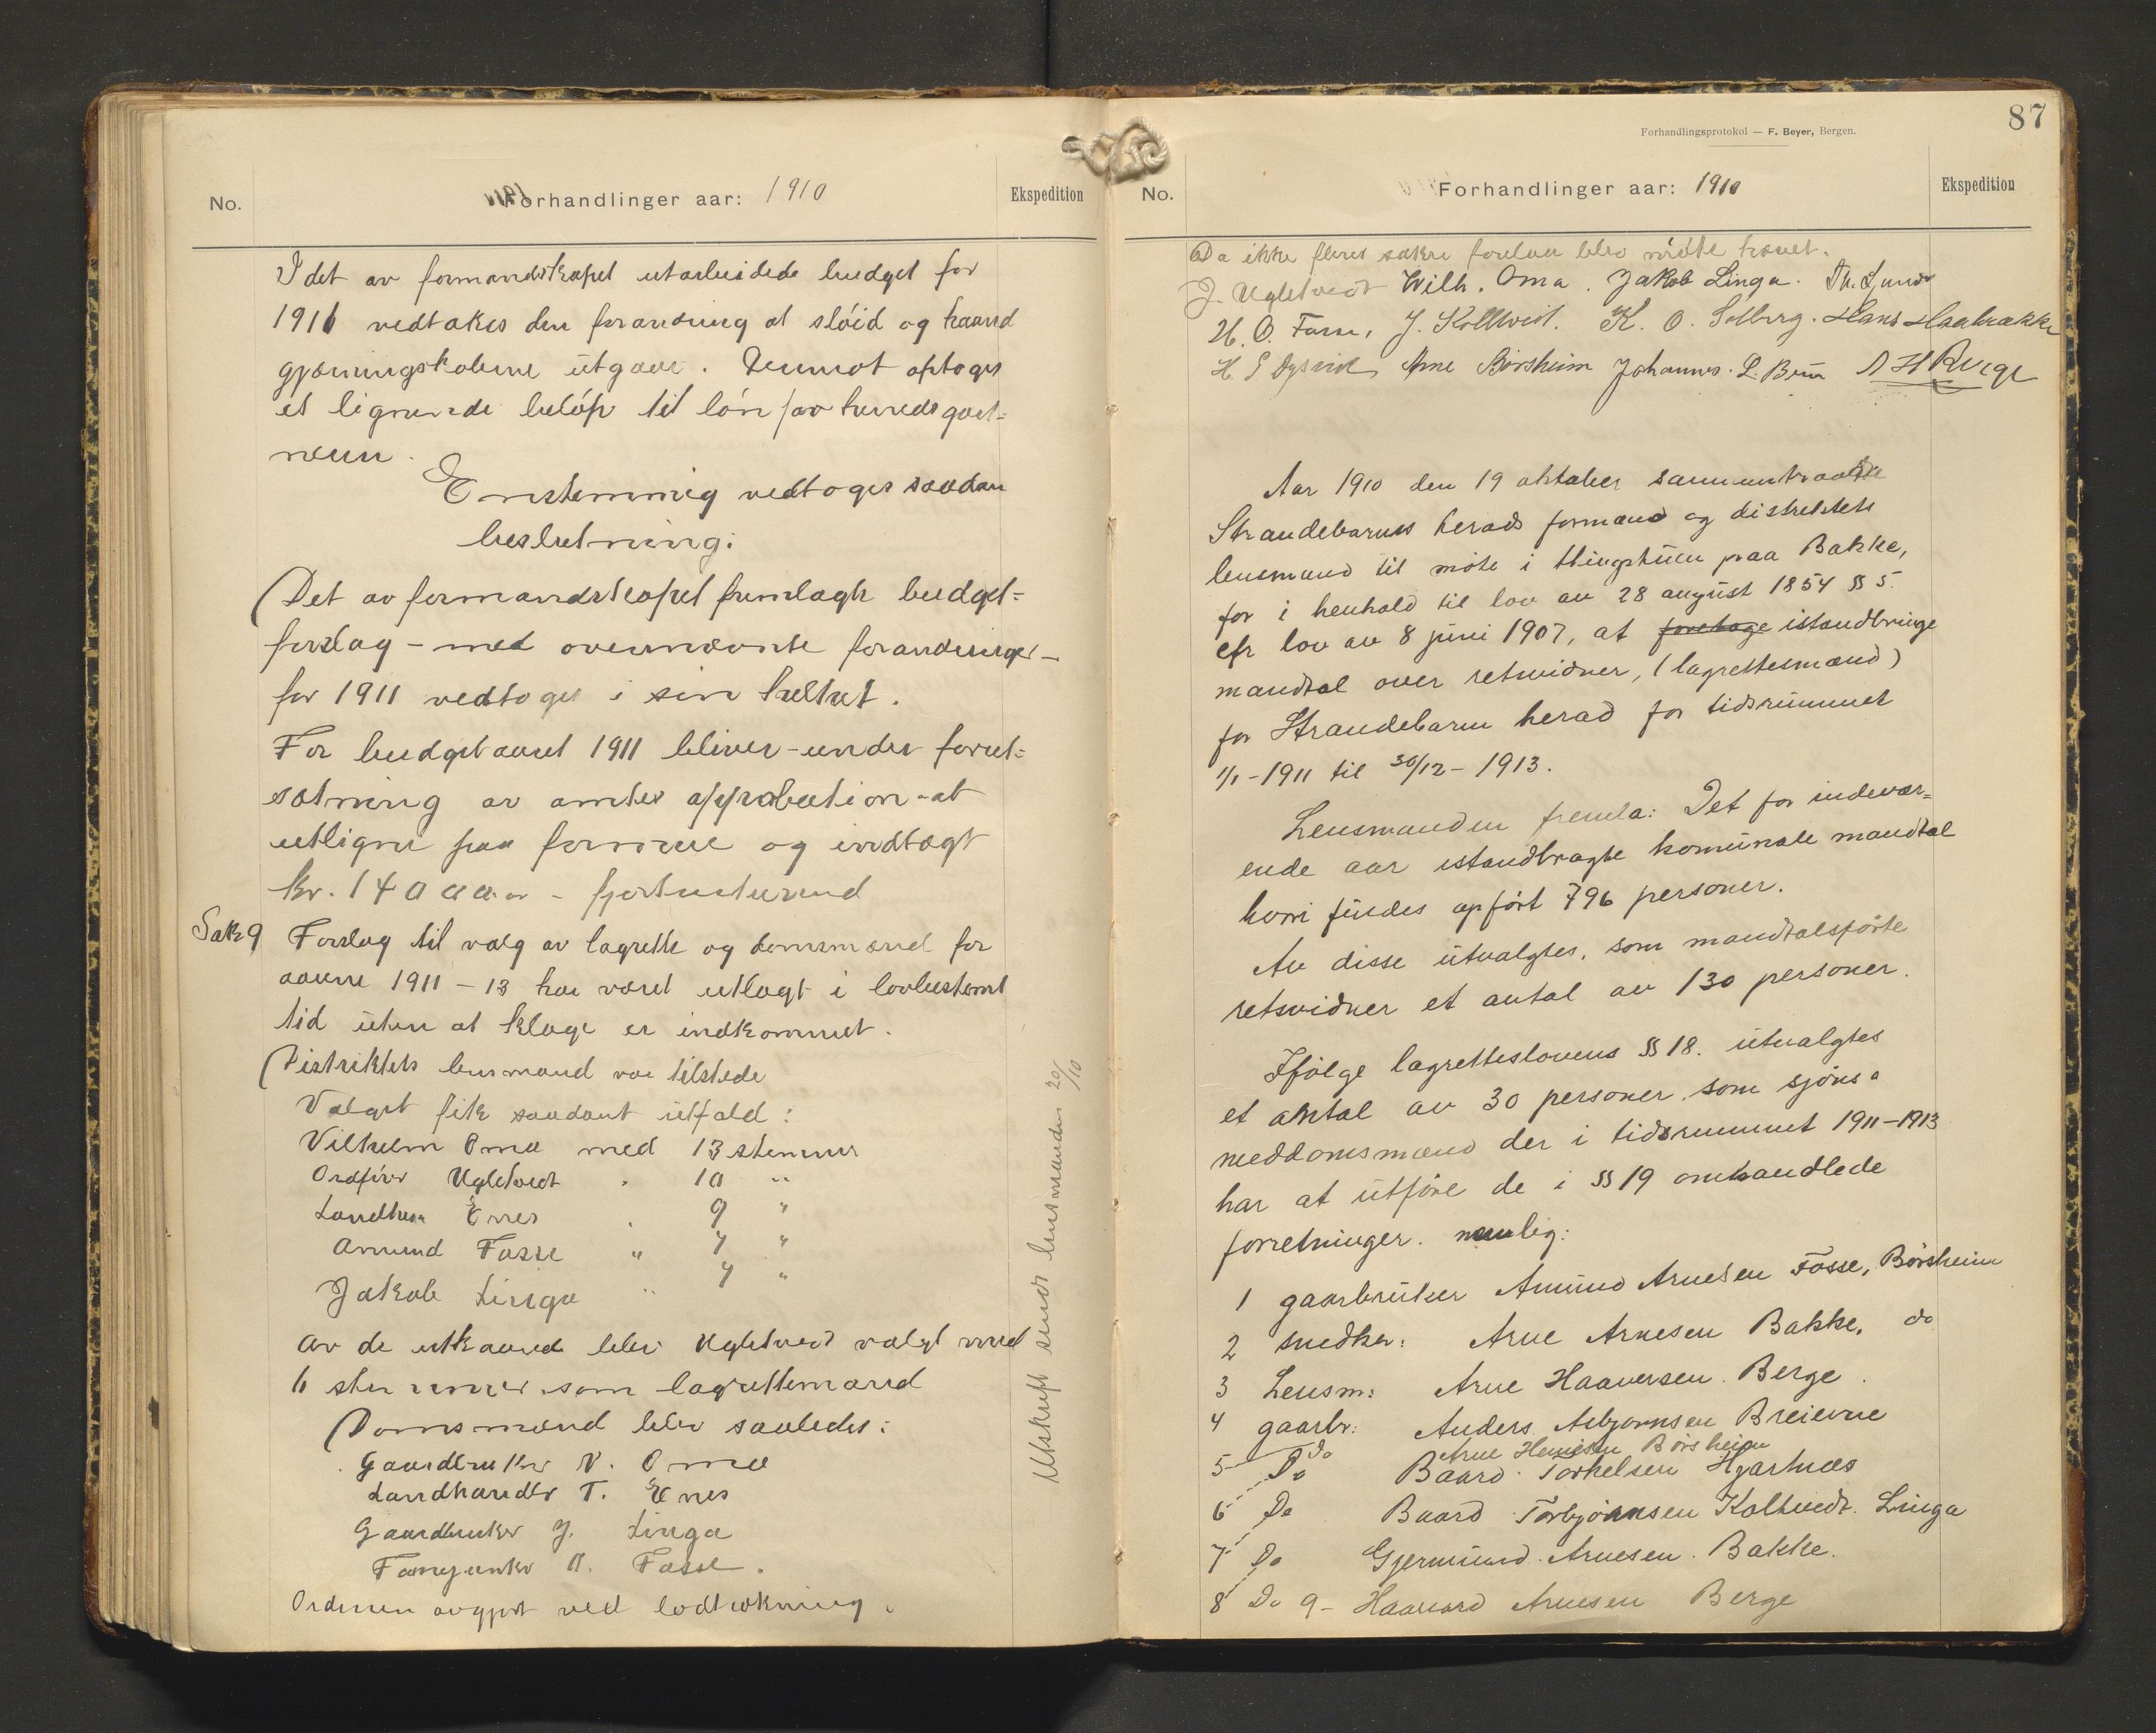 No.
Forhandlinger aar: 1910
Ekspedition
I det av formandskapet utarbeidede budget for
1911 vedtakes den forandring at slöid og haand
gjerningskolerne utgaar. Derimot optoges
et lignende belöp til lön for herredsgart=
neren.
Enstemmig vedtoges saadan
beslutning:
Det av formandskapet fremlagte budget=
forslag - med overnævnte forandringer -
for 1911 vedtoges i sin helhet.
For budgetaaret 1911 bliver - under forut=
sætning av amtets approbation - at
utligne paa formue og indtægt
kr. 14000.00 - fjortentusend
Sak 9 Forslag til valg av lagrette og domsmænd for
aarene 1911 - 13 har været utlagt i lovbestemt
tid uten at klage er indkommet.
Distriktets lensmand var tilstede
Valget fik saadant utfald:
Vilhelm Oma med 13 stemmer
Ordförer Ugletveit " 10 "
Landhan. Enes " 9 "
Amund Fosse " 7 "
Jakob Linga " 7 "
Av de utkaarede blev Ugletveit valgt med
6 stemmer som lagrettemand
Domsmænd blev saaledes:
Gaardbruker V. Oma
Landhandler T. Enes
Gaardbruker J. Linga
A. Fosse.
Ordenen avgjort ved lodtrækning.
Utskrift sendt lensmanden 20/10
87
Forhandlingsprotokol — F. Beyer, Bergen.
No.
Forhandlinger aar: 1910
Ekspedition
Da ikke fleres saker forelaa blev möte hævet.
J. Ugletveit Wilh. Oma. Jakob Linga. Th.
O. Fosse, J. Kolltveit. K. O. Solberg. Hans Haabrække
H. E Dysvik Arne Börsheim Johannes. L. A H Berge
Aar 1910 den 19 oktober sammentraadte
Strandebarms herads formænd og distriktets
lensmand til möte i thingstuen paa Bakke,
for i henhold til lov av 28 august 1854 §§ 5.
cfr lov av 8 juni 1907, at foretage istandbringe
mandtal over retsvidner, (lagrettesmænd)
for Strandebarm herad for tidsrummet
1/1 - 1911 til 30/12 - 1913.
Lensmanden fremla: Det for indevær=
ende aar istandbragte komunale mandtal
hvori findes opfört 796 personer.
Av disse utvalgtes, som mandtalsförte
retsvidner et antal av 130 personer.
Ifölge lagretteslovens §§ 18. utvalgtes
et antal av 30 personer. som sjöns=
meddomsmænd der i tidsrummet 1911-1913
har at utföre de i §§ 19 omhandlede
forretninger. nemlig:
1 gaarbruker Amund Arnesen Fosse, Börsheim
2 snedker: Arne Arnesen Bakke, do
3 Lensm: Arne Haaversen. Berge.
4 gaarbr: Anders Asbjörnsen Breievne
Do Arne Börsheim
5 Do Baard Torkelsen Hjartnæs
6 Do Baard Torbjörnsen Kolltveit. Linga
7 Do Gjermund. Arnesen. Bakke.
8 Do 9- Haavard Arnesen Berge